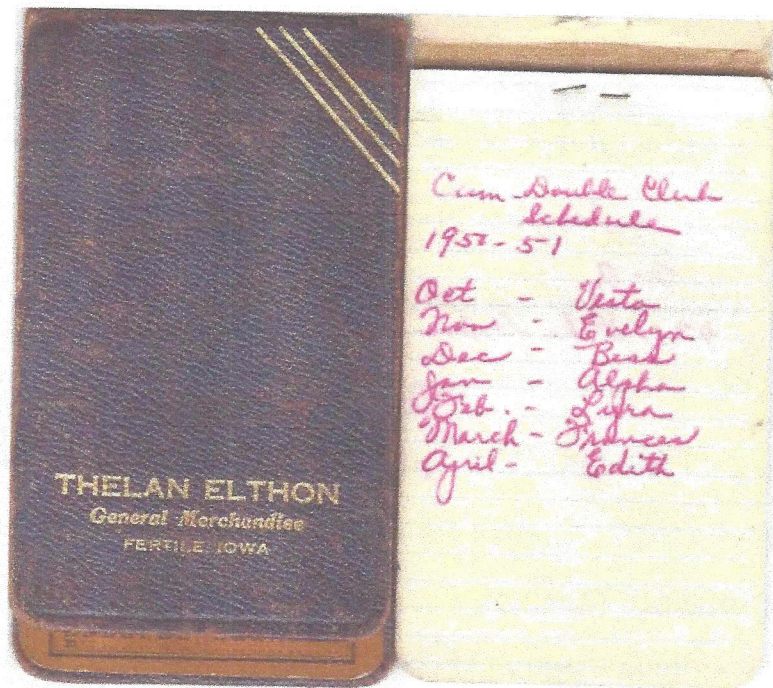 THELAN ELTHON
General Merchandise
FERTILE IOWA
Cum Double Club
Schedule
1950-51
Oct - Vesta
Nov - Evelyn
Dec - Bess
Jan - Alpha
Feb. - Lyra
March - Frances
April - Edith